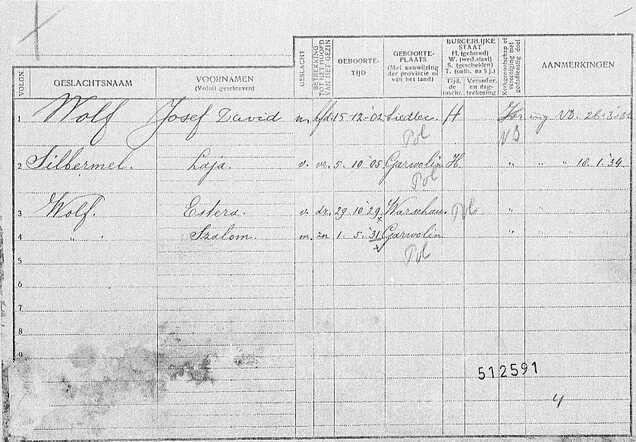 VOLGN. GESLACHTSNAAM VOORNAMEN (Voluit geschreven) GESLACHT BETREKKING TOT HET HOOFD VAN HET GEZIN GEBOORTE-TIJD GEBOORTE-PLAATS (Met aanwijzing der provincie of van het land) BURGERLIJKE STAAT H. (gehuwd) W. (wed.staat) S. (gescheiden) T. Kerkgenootschap of vereeniging met godsdienstig doel AANMERKINGEN
1 Wolf Josef David m. hfd 15 12 '02 Siedlec H
Pol VB
2 Silbermel Laja v. vr. 5. 10 '05 Garwolin H. " " " 10.1.'34
Pol
3 Wolf. Estera v. dr. 29 10 '29 Warschau Pol " "
4 " Szalom. m. zn 1. 5. '31 Garwolin " "
Pol
5
6
7
8
9
512591
4